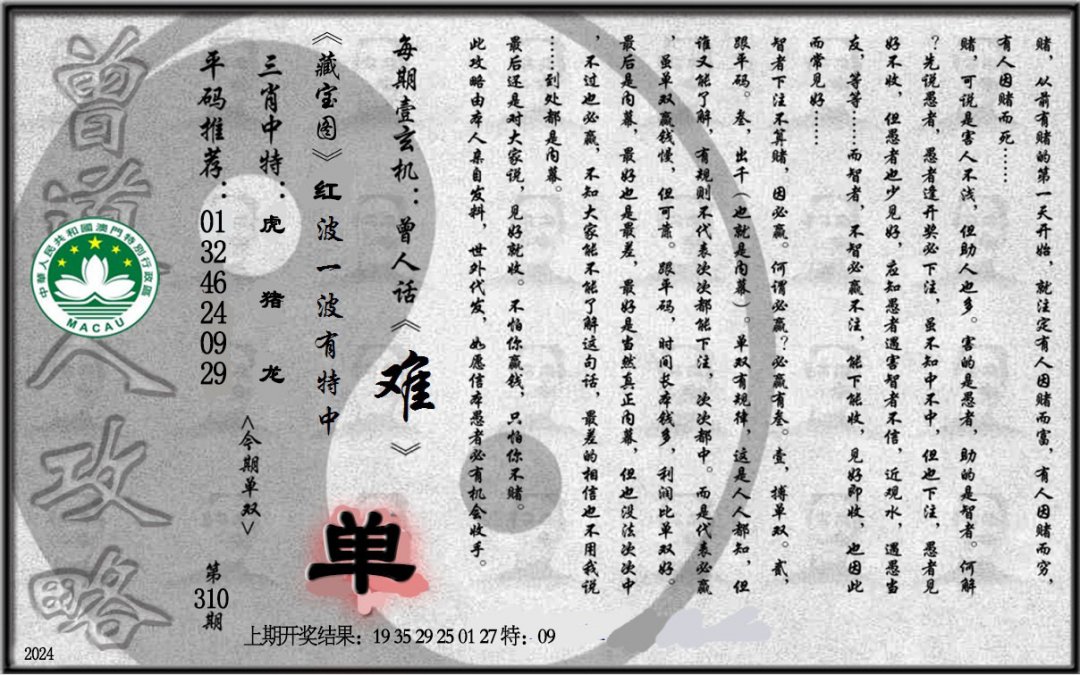 赌，从前有赌的第一天开始，就注定有人因赌而富，有人因赌而穷，
有人因赌而死……
赌，可说是害人不浅，但助人也多。害的是愚者，助的是智者。何解
？先说愚者，愚者逢开奖必下注，虽不知中不中，但也下注，愚者见
好不收，但愚者也少见好，应知愚者遇害智者不信，近观水，遇愚当
友，等等……而智者，不智必赢不注，能下能收，见好即收，也因此
而常见好……
智者下注不算赌，因必赢。何谓必赢？必赢有叁。壹，搏单双。贰，
跟平码。叁，出千（也就是内幕）。单双有规律，这是人人都知，但
谁又能了解，有规则不代表次次都能下注，次次都中。而是代表必赢
，虽单双赢钱慢，但可靠。跟平码，时间长本钱多，利润比单双好。
最后是内幕，最好也是最差，最好是当然真正内幕，但也没法次次中
，不过也必赢，不知大家能不能了解这句话，最差的相信也不用我说
……到处都是内幕。
最后还是对大家说，见好就收。不怕你赢钱，只怕你不赌。
此攻略由本人亲自发料，世外代发，如愿信本愚者必有机会收手。
每期壹玄机：曾人话《难》
《藏宝图》红波一波有特中
单
三肖中特：虎 猪 龙
<今期单双>
平码推荐：01 32 46 24 09 29
第310期
曾道人攻略
中華人民共和國澳門特別行政區
MACAU
上期开奖结果：19 35 29 25 01 27 特：09
2024